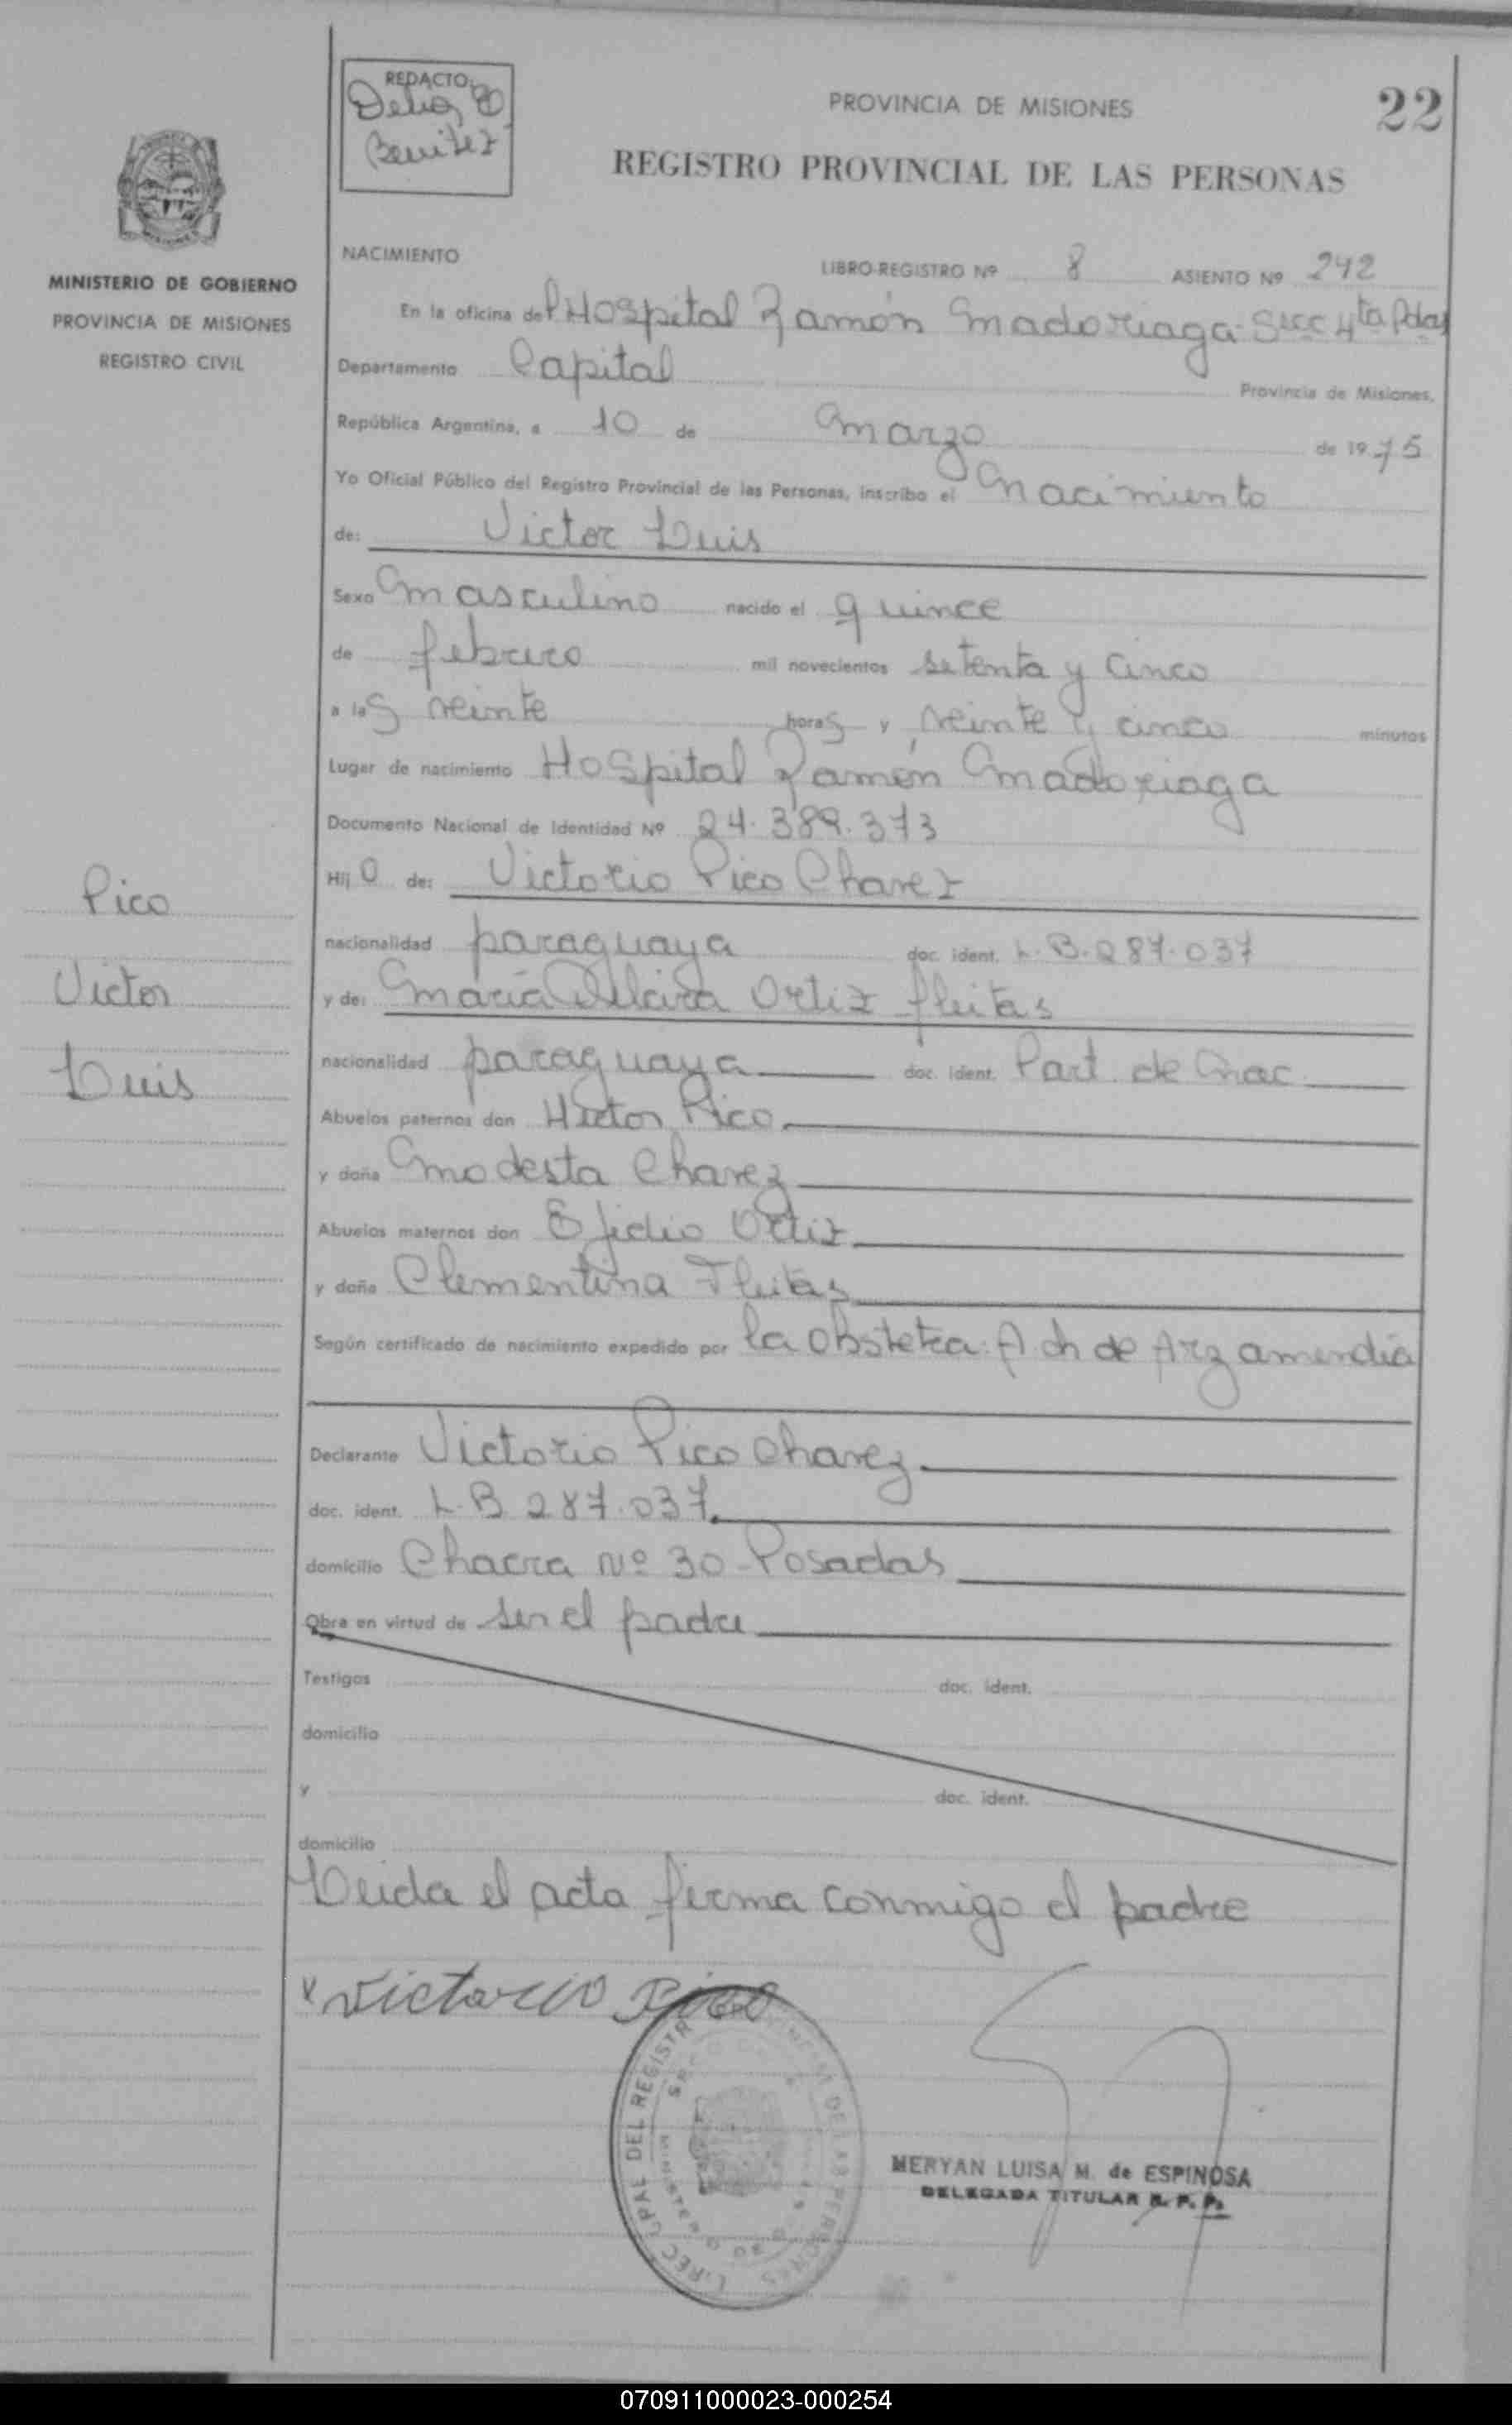 REDACTO
Benitez
PROVINCIA DE MISIONES
22
REGISTRO PROVINCIAL DE LAS PERSONAS
MINISTERIO DE GOBIERNO
PROVINCIA DE MISIONES
REGISTRO CIVIL
NACIMIENTO
LIBRO-REGISTRO Nº 8 ASIENTO Nº 242
En la oficina del Hospital Ramón Madoriaga Secc 4ta Pdas
Departamento Capital Provincia de Misiones,
República Argentina, a 10 de Marzo de 1975
Yo Oficial Público del Registro Provincial de las Personas, inscribo el Nacimiento
de: Victor Luis
Sexo Masculino nacido el quince
de febrero mil novecientos setenta y cinco
a las veinte horas y veinte y cinco minutos
Lugar de nacimiento Hospital Ramón Madoriaga
Documento Nacional de Identidad Nº 24.389.373
Hijo de: Victorio Pico Chavez
nacionalidad paraguaya doc. ident. L.B.287.037
y de: María Alcira Ortiz fleitas
nacionalidad paraguaya doc. ident. Part. de Nac.
Abuelos paternos don Hector Pico
y doña Modesta Chavez
Abuelos maternos don Ejidio Ortiz
y doña Clementina Fleitas
Según certificado de nacimiento expedido por la Obstetra: A ch de Arzamendia
Pico
Victor
Luis
Declarante Victorio Pico Chavez
doc. ident. L.B 287.037
domicilio Chacra Nº 30 - Posadas
Obra en virtud de ser el padre
Testigos doc. ident.
domicilio
y doc. ident.
domicilio
Leida el acta firma conmigo el padre
x Victorio Pico
MERYAN LUISA M. de ESPINOSA
DELEGADA TITULAR R. P. P.
070911000023-000254